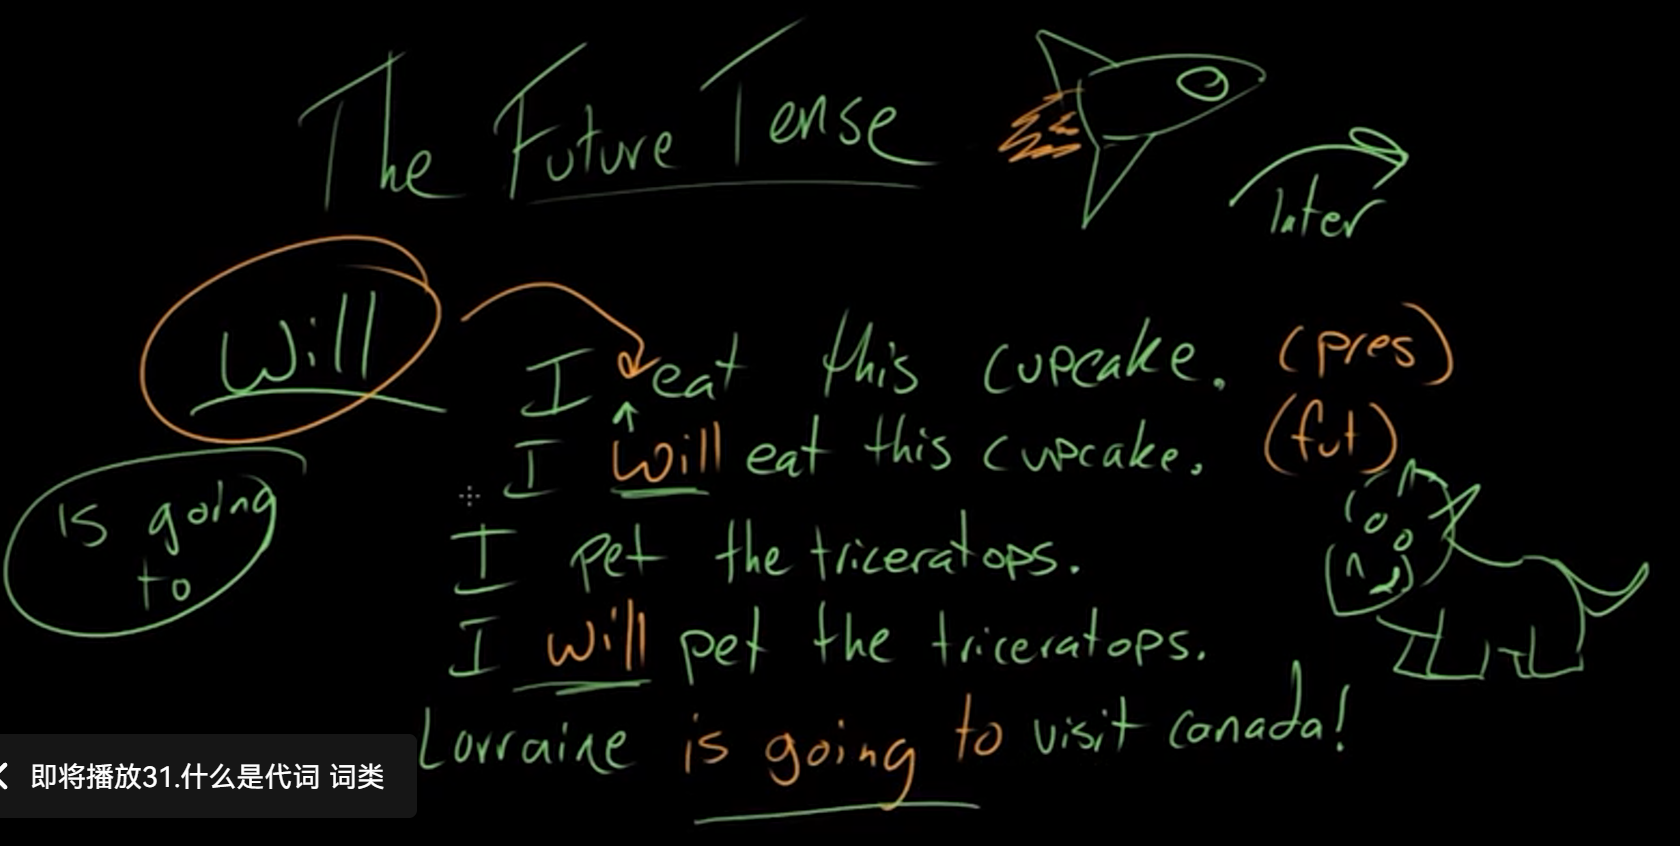 The Future Tense
later
Will
I eat this cupcake. (pres)
I will eat this cupcake. (fut)
is going
to
I pet the triceratops.
I will pet the triceratops.
Lorraine is going to visit Canada!
即将播放31.什么是代词 词类